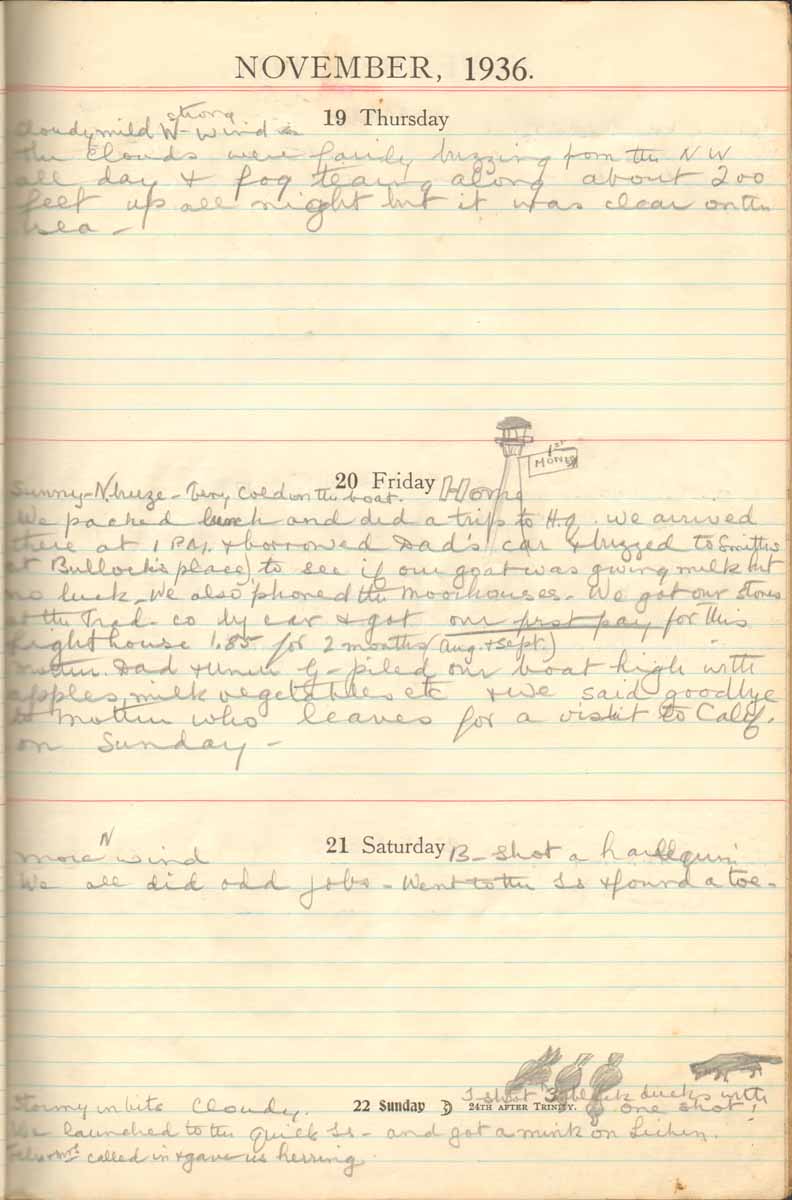 NOVEMBER, 1936.
19 Thursday
Cloudy mild strong W- wind
the clouds were fairly buzzing from the NW
all day & fog tearing along about 200
feet up all night but it was clear on the
sea -
1st MONEY
20 Friday Home
Sunny - N. breeze - Very cold on the boat.
We packed lunch and did a trip to H.q. we arrived
there at 1 P.M. & borrowed Dad's car & buzzed to Smiths
at Bullock's place) to see if our goat was giving milk but
no luck - We also 'phoned the Moorhouses - We got our stores
at the Trad- co by car & got our first pay for this
Lighthouse 1.85 for 2 months (Aug. & Sept.)
Mother. Dad & G- piled our boat high with
apples, milk vegetables etc & we said goodbye
to Mother who leaves for a visit to Calif.
on Sunday -
21 Saturday B- shot a harlequin
More N wind
We all did odd jobs - Went to the Is & found a toe -
22 Sunday
24TH AFTER TRINITY.
I shot 3 black ducks with
one shot!
Stormy in bits Cloudy.
We launched to the Quick Is - and got a mink on
called in & gave us herring